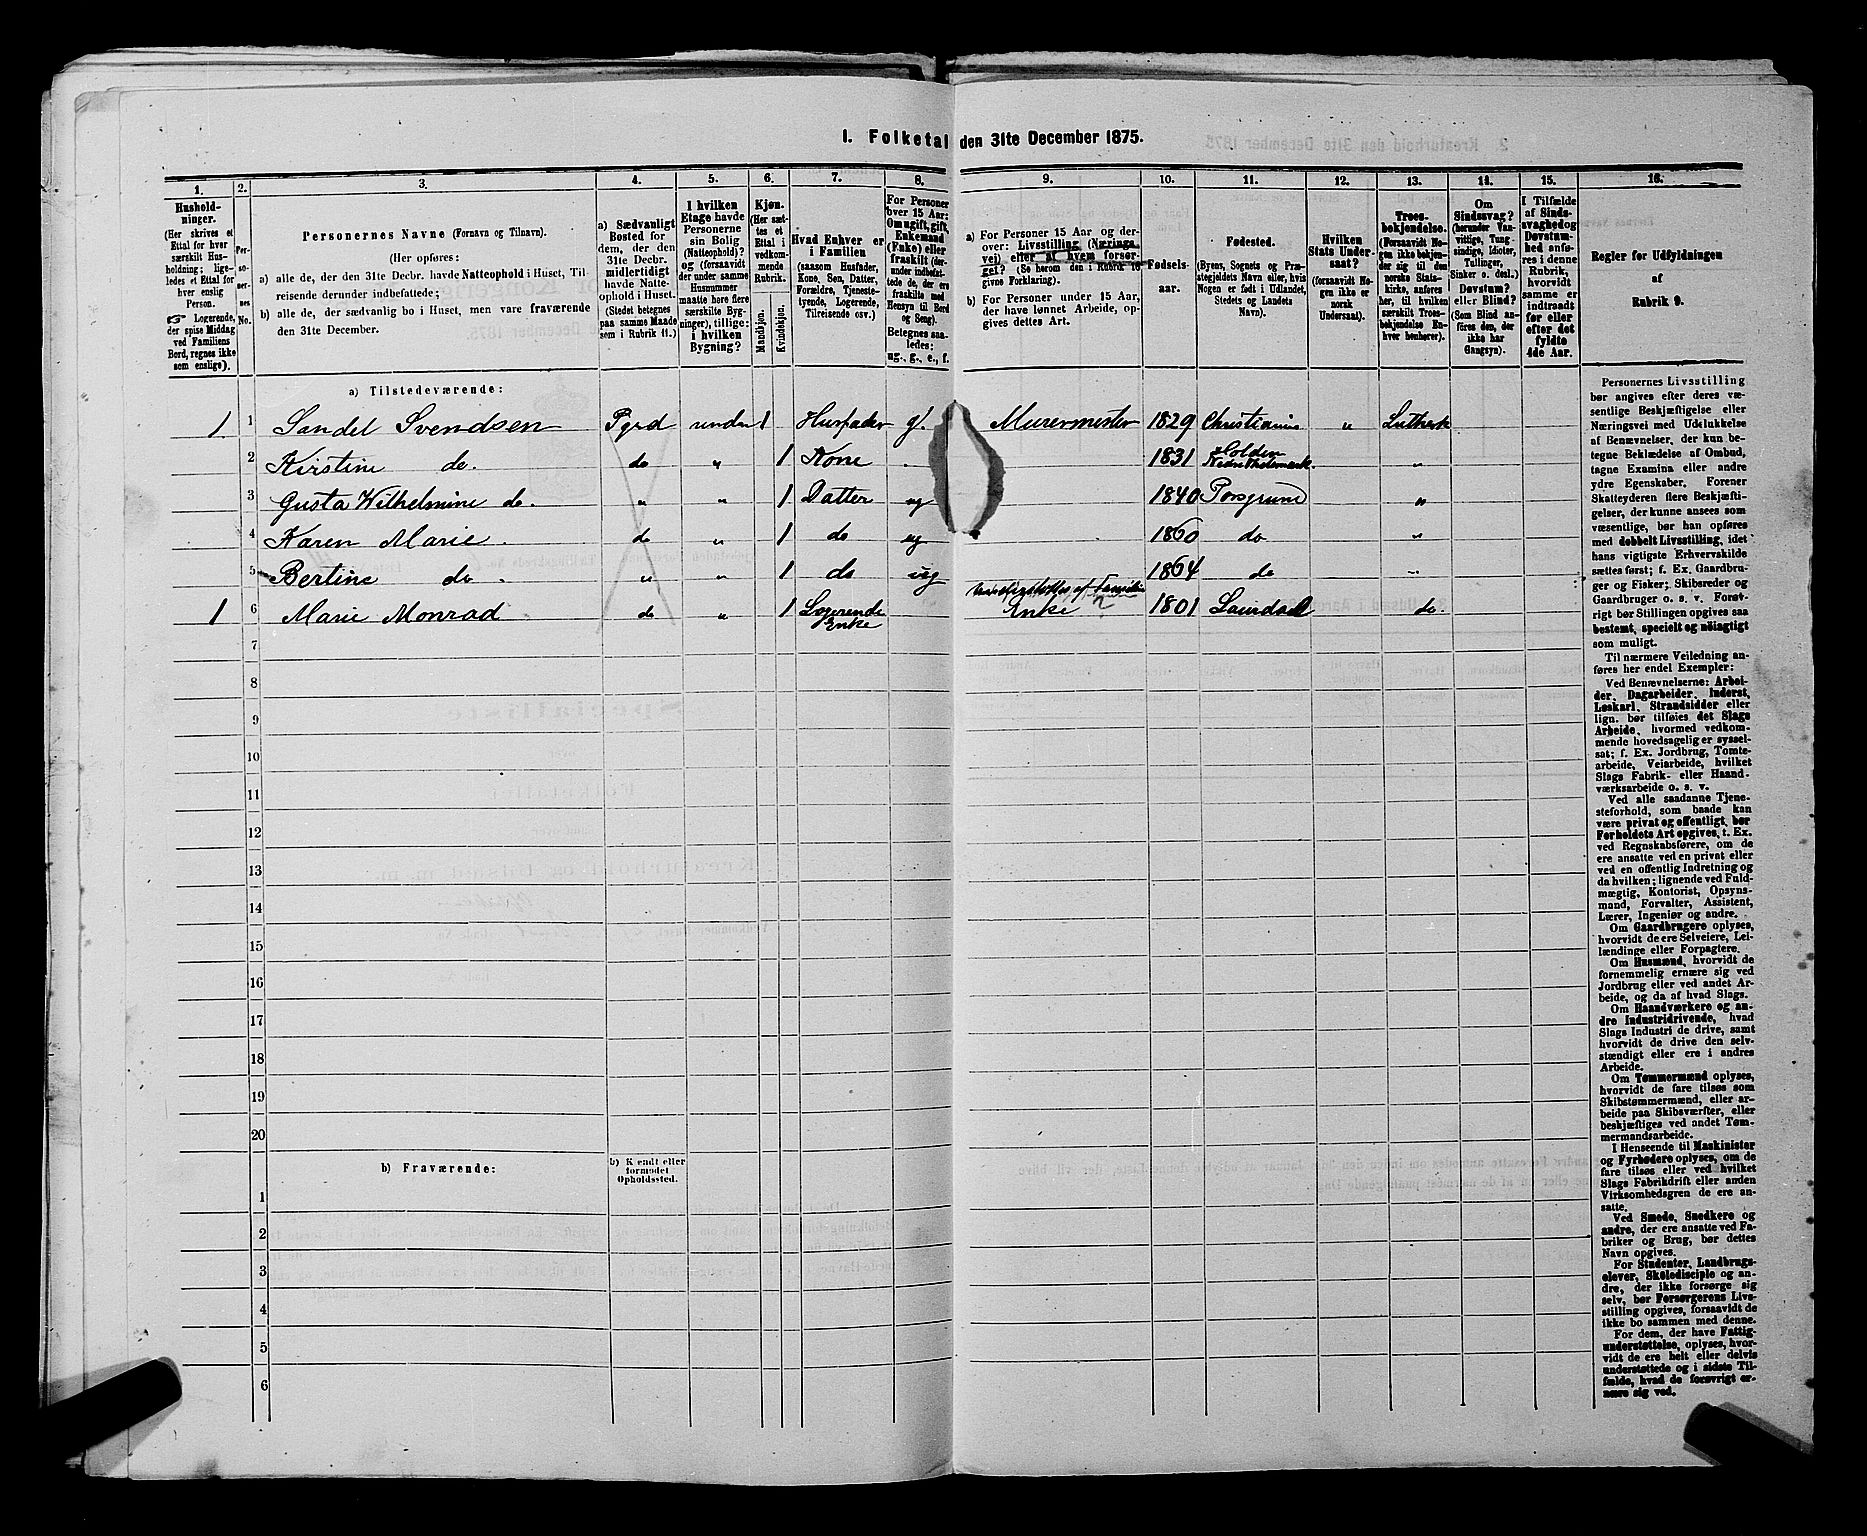 1. Folketal den 31te December 1875.
1. 2. 3. 4. 5. 6. 7. 8. 9. 10. 11. 12. 13. 14. 15. 16.
Hushold-
ninger.
(Her skrives et
Ettal for hver
særskilt Hus-
holdning; lige-
ledes et Ettal for
hver enslig
Person.
☞ Logerende,
der spise Middag
ved Familiens
Bord, regnes ikke
som enslige).
Per-
so-
ner-
nes
No.
Personernes Navne (Fornavn og Tilnavn).
(Her opføres:
a) alle de, der den 31te Decbr. havde Natteophold i Huset, Til-
reisende derunder indbefattede;
b) alle de, der sædvanlig bo i Huset, men vare fraværende
den 31te December.
a) Sædvanligt
Bosted for
dem, der den
31te Decbr.
midlertidigt
havde Natte-
ophold i Huset.
(Stedet betegnes
paa samme Maade
som i Rubrik 11.)
I hvilken
Etage havde
Personerne
sin Bolig
(Natteophold)?
og (forsaavidt
der under samme
Husnummer
maatte høre flere
særskilte Byg-
ninger), tillige:
i hvilken
Bygning?
Kjøn.
(Her sæt-
tes et
Ettal i
vedkom-
mende
Rubrik.
Mandkjøn.
Kvindekjøn.
Hvad Enhver er
i Familien
(saasom Husfader,
Kone, Søn, Datter,
Forældre, Tjeneste-
tyende, Logerende,
Tilreisende osv.)
For Personer
over 15 Aar:
Om ugift, gift,
Enkemand
(Enke) eller
fraskilt (der-
under indbefat-
tede de, der ere
fraskilte med
Hensyn til Bord
og Seng).
Betegnes saa-
ledes:
ug., g., e., f.
a) For Personer 15 Aar og der-
over: Livsstilling (Nærings-
vei) eller af hvem forsør-
get? (Se herom den i Rubrik 16
givne Forklaring).
b) For Personer under 15 Aar,
der have lønnet Arbeide, op-
gives dettes Art.
Fødsels-
aar.
Fødested.
(Byens, Sognets og Præ-
stegjeldets Navn eller, hvis
Nogen er født i Udlandet,
Stedets og Landets
Navn).
Hvilken
Stats Under-
saat?
(Forsaavidt No-
gen ikke er
norsk
Undersaat).
Troes-
bekjendelse.
(Forsaavidt No-
gen ikke bekjen-
der sig til den
norske Stats-
kirke, anføres
her, til hvilken
særskilt Troes-
bekjendelse En-
hver henhører).
Om
Sindssvag?
(herunder Van-
vittige, Tung-
sindige, Idioter,
Tullinger,
Sinker o. desl.)
Døvstum?
eller Blind?
(Som Blind an-
føres den, der
ikke har
Gangsyn).
I Tilfælde
af Sinds-
svaghed og
Døvstum-
hed anfø-
res i denne
Rubrik,
hvorvidt
samme er
indtraadt
før eller
efter det
fyldte
4de Aar.
Regler for Udfyldningen
af
Rubrik 9.
a) Tilstedeværende:
1 1 Sandel Svendsen Pgrd unden 1 Husfader g. Murermester 1829 Christiania " Luthersk
2 Kirstine do. do " 1 Kone . 1831 Holden Nedre Thelemark. "
3 Gusta Wilhelmine do. " " 1 Datter ug 1840 Porsgrund "
4 Karen Marie . do " 1 do ug 1860 do "
5 Bertine do . " " 1 do ug 1864 do "
af Familien
1 6 Marie Monrad do " 1 Logerende Enke Enke 1801 Laurdal do.
7
8
9
10
11
12
13
14
15
16
17
18
19
20
b) Fraværende:
b) Kjendt eller
formodet
Opholdssted.
1
2
3
4
5
6
Personernes Livsstilling
bør angives efter deres væ-
sentlige Beskjæftigelse eller
Næringsvei med Udelukkelse
af Benævnelser, der kun be-
tegne Beklædelse af Ombud,
tagne Examina eller andre
ydre Egenskaber. Forener
Skatteyderen flere Beskjæfti-
gelser, der kunne ansees som
væsentlige, bør han opføres
med dobbelt Livsstilling, idet
hans vigtigste Erhvervskilde
sættes først; f. Ex. Gaardbru-
ger og Fisker; Skibsreder og
Gaardbruger o. s. v. Forøv-
rigt bør Stillingen opgives saa
bestemt, specielt og nøiagtigt
som muligt.
Til nærmere Veiledning an-
føres her endel Exempler:
Ved Benævnelserne: Arbei-
der, Dagarbeider, Inderst,
Løskarl, Strandsidder eller
lign. bør tilføies det Slags
Arbeide, hvormed vedkom-
mende hovedsagelig er syssel-
sat; f. Ex. Jordbrug, Tomte-
arbeide, Veiarbeide, hvilket
Slags Fabrik- eller Haand-
værksarbeide o. s. v.
Ved alle saadanne Tjene-
steforhold, som baade kan
være privat og offentligt, bør
Forholdets Art opgives, t. Ex.
ved Regnskabsførere, om de
ere ansatte ved en privat eller
ved en offentlig Indretning og
da hvilken; lignende ved Fuld-
mægtig, Kontorist, Opsyns-
mand, Forvalter, Assistent,
Lærer, Ingeniør og andre.
Om Gaardbrugere oplyses,
hvorvidt de ere Selveiere, Lei-
lændinge eller Forpagtere.
Om Husmænd, hvorvidt de
fornemmelig ernære sig ved
Jordbrug eller ved andet Ar-
beide, og da af hvad Slags.
Om Haandværkere og an-
dre Industridrivende, hvad
Slags Industri de drive, samt
hvorvidt de drive den selv-
stændigt eller ere i andres
Arbeide.
Om Tømmermænd oplyses,
hvorvidt de fare tilsøs som
Skibstømmermænd, eller ar-
beide paa Skibsværfter, eller
beskjæftiges ved andet Tøm-
mermandsarbeide.
I Henseende til Maskinister
og Fyrbødere oplyses, om de
fare tilsøs eller ved hvilket
Slags Fabrikdrift eller anden
Virksomhedsgren de ere an-
satte.
Ved Smede, Snedkere og
andre, der ere ansatte ved Fa-
briker og Brug, bør dettes
Navn opgives.
For Studenter, Landbrugs-
elever, Skoledisciple og an-
dre, der ikke forsørge sig
selv, bør Forsørgerens Livs-
stilling opgives, forsaavidt de
ikke bo sammen med denne.
For dem, der have Fattig-
understøttelse, oplyses, hvor-
vidt de ere helt eller delvis
understøttede og i sidste Til-
fælde, hvad de forøvrigt er-
nære sig ved.